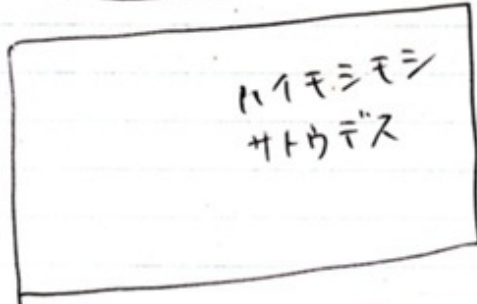 ハイモシモシ
サトウデス